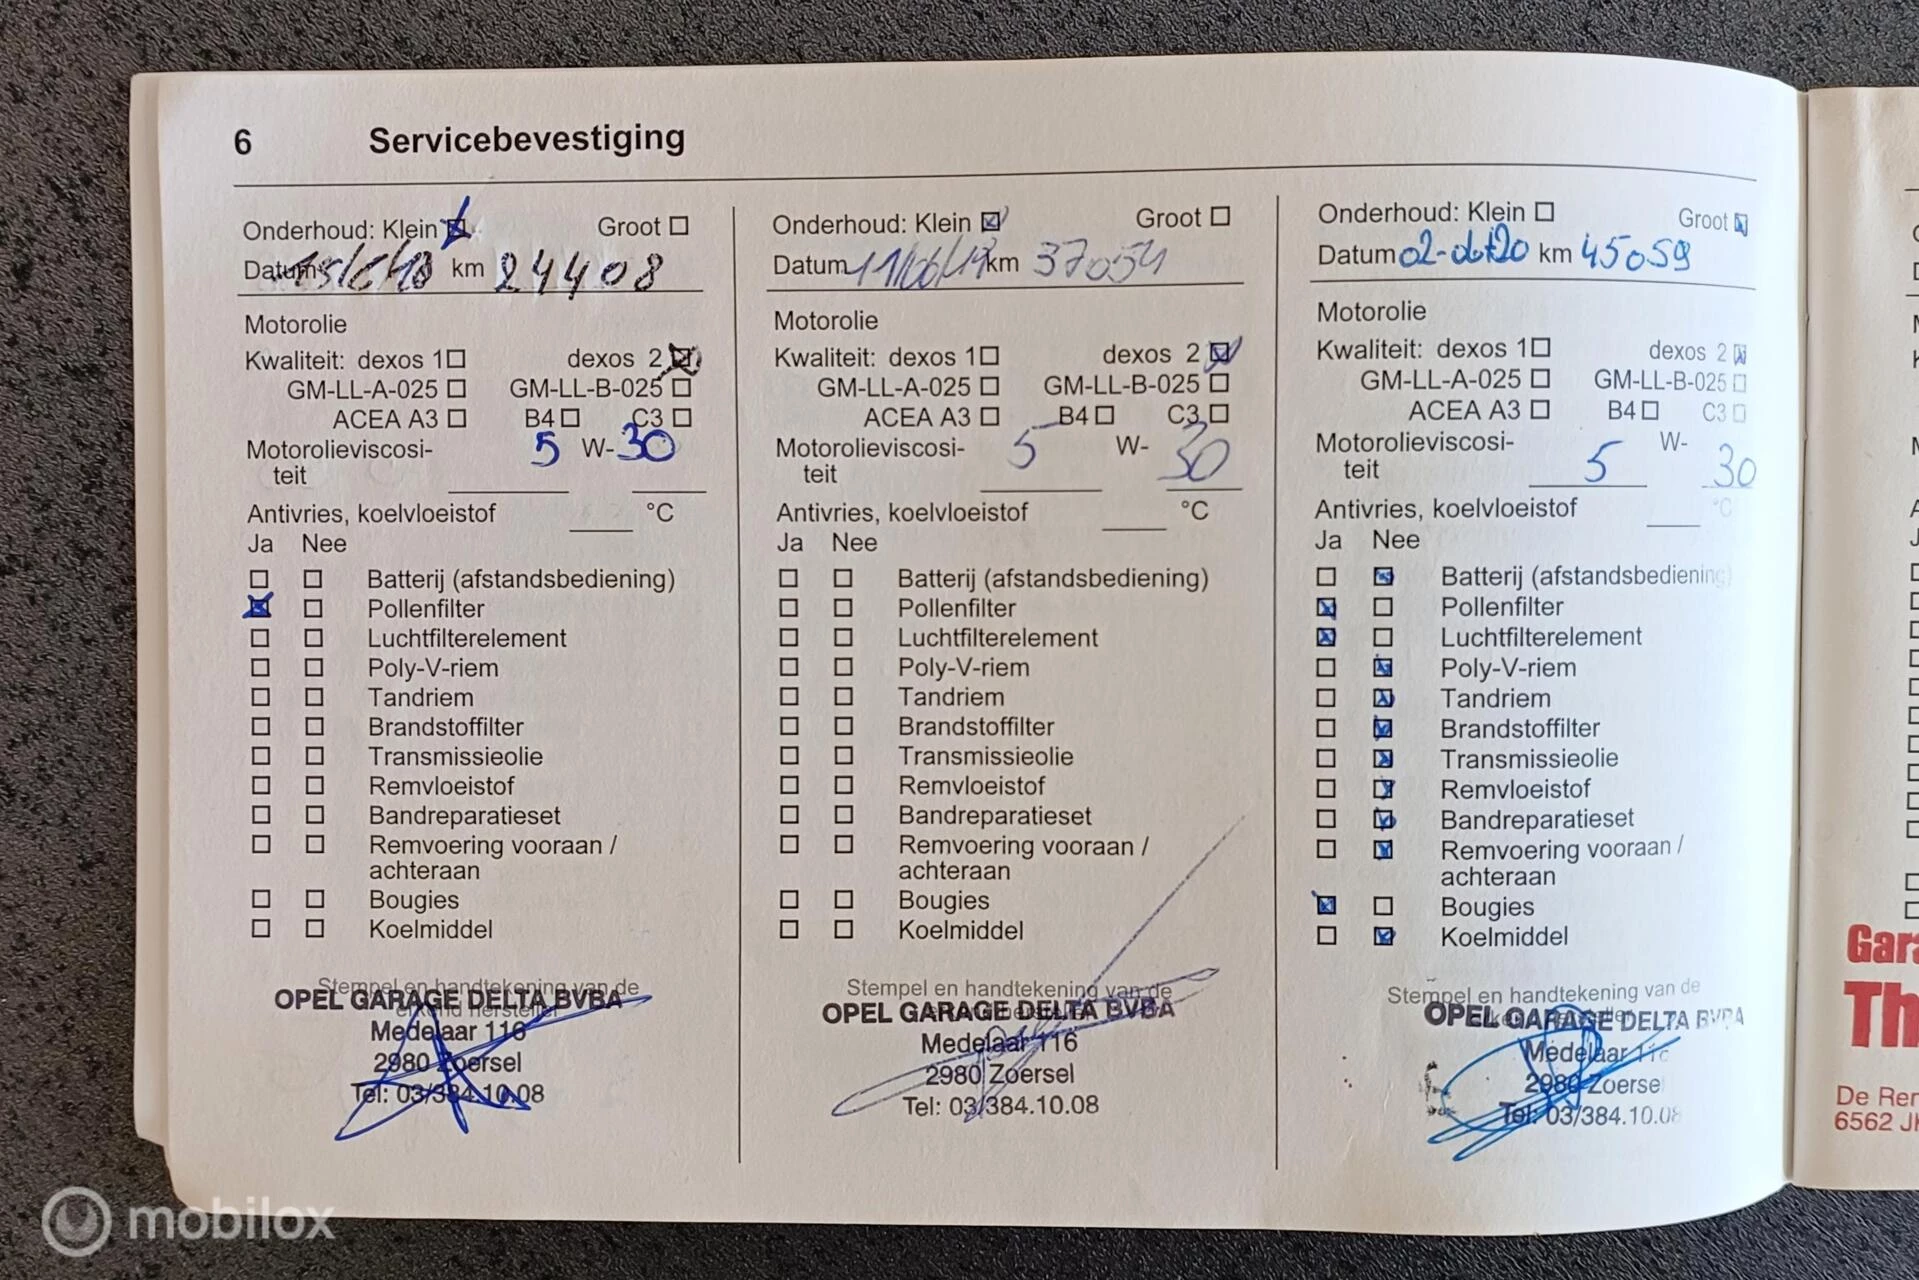 6 Servicebevestiging
Onderhoud: Klein Groot
Datum 15/6/18 km 24408
Motorolie
Kwaliteit: dexos 1 dexos 2
GM-LL-A-025 GM-LL-B-025
ACEA A3 B4 C3
Motorolieviscosi- 5 W-30
teit
Antivries, koelvloeistof °C
Ja Nee
Batterij (afstandsbediening)
Pollenfilter
Luchtfilterelement
Poly-V-riem
Tandriem
Brandstoffilter
Transmissieolie
Remvloeistof
Bandreparatieset
Remvoering vooraan /
achteraan
Bougies
Koelmiddel
Stempel en handtekening van de
erkend hersteller
OPEL GARAGE DELTA BVBA
Medelaar 116
2980 Zoersel
Tel: 03/384.10.08
Onderhoud: Klein Groot
Datum 11/06/19 km 37054
Motorolie
Kwaliteit: dexos 1 dexos 2
GM-LL-A-025 GM-LL-B-025
ACEA A3 B4 C3
Motorolieviscosi- 5 W-30
teit
Antivries, koelvloeistof °C
Ja Nee
Batterij (afstandsbediening)
Pollenfilter
Luchtfilterelement
Poly-V-riem
Tandriem
Brandstoffilter
Transmissieolie
Remvloeistof
Bandreparatieset
Remvoering vooraan /
achteraan
Bougies
Koelmiddel
Stempel en handtekening van de
OPEL GARAGE DELTA BVBA
Medelaar 116
2980 Zoersel
Tel: 03/384.10.08
Onderhoud: Klein Groot
Datum 02-okt20 km 45059
Motorolie
Kwaliteit: dexos 1 dexos 2
GM-LL-A-025 GM-LL-B-025
ACEA A3 B4 C3
Motorolieviscosi- 5 W-30
teit
Antivries, koelvloeistof °C
Ja Nee
Batterij (afstandsbediening)
Pollenfilter
Luchtfilterelement
Poly-V-riem
Tandriem
Brandstoffilter
Transmissieolie
Remvloeistof
Bandreparatieset
Remvoering vooraan /
achteraan
Bougies
Koelmiddel
Stempel en handtekening van de
OPEL GARAGE DELTA BVBA
Medelaar 116
2980 Zoersel
Tel: 03/384.10.08
Gara
Th
De Ren
6562 JH
mobilox